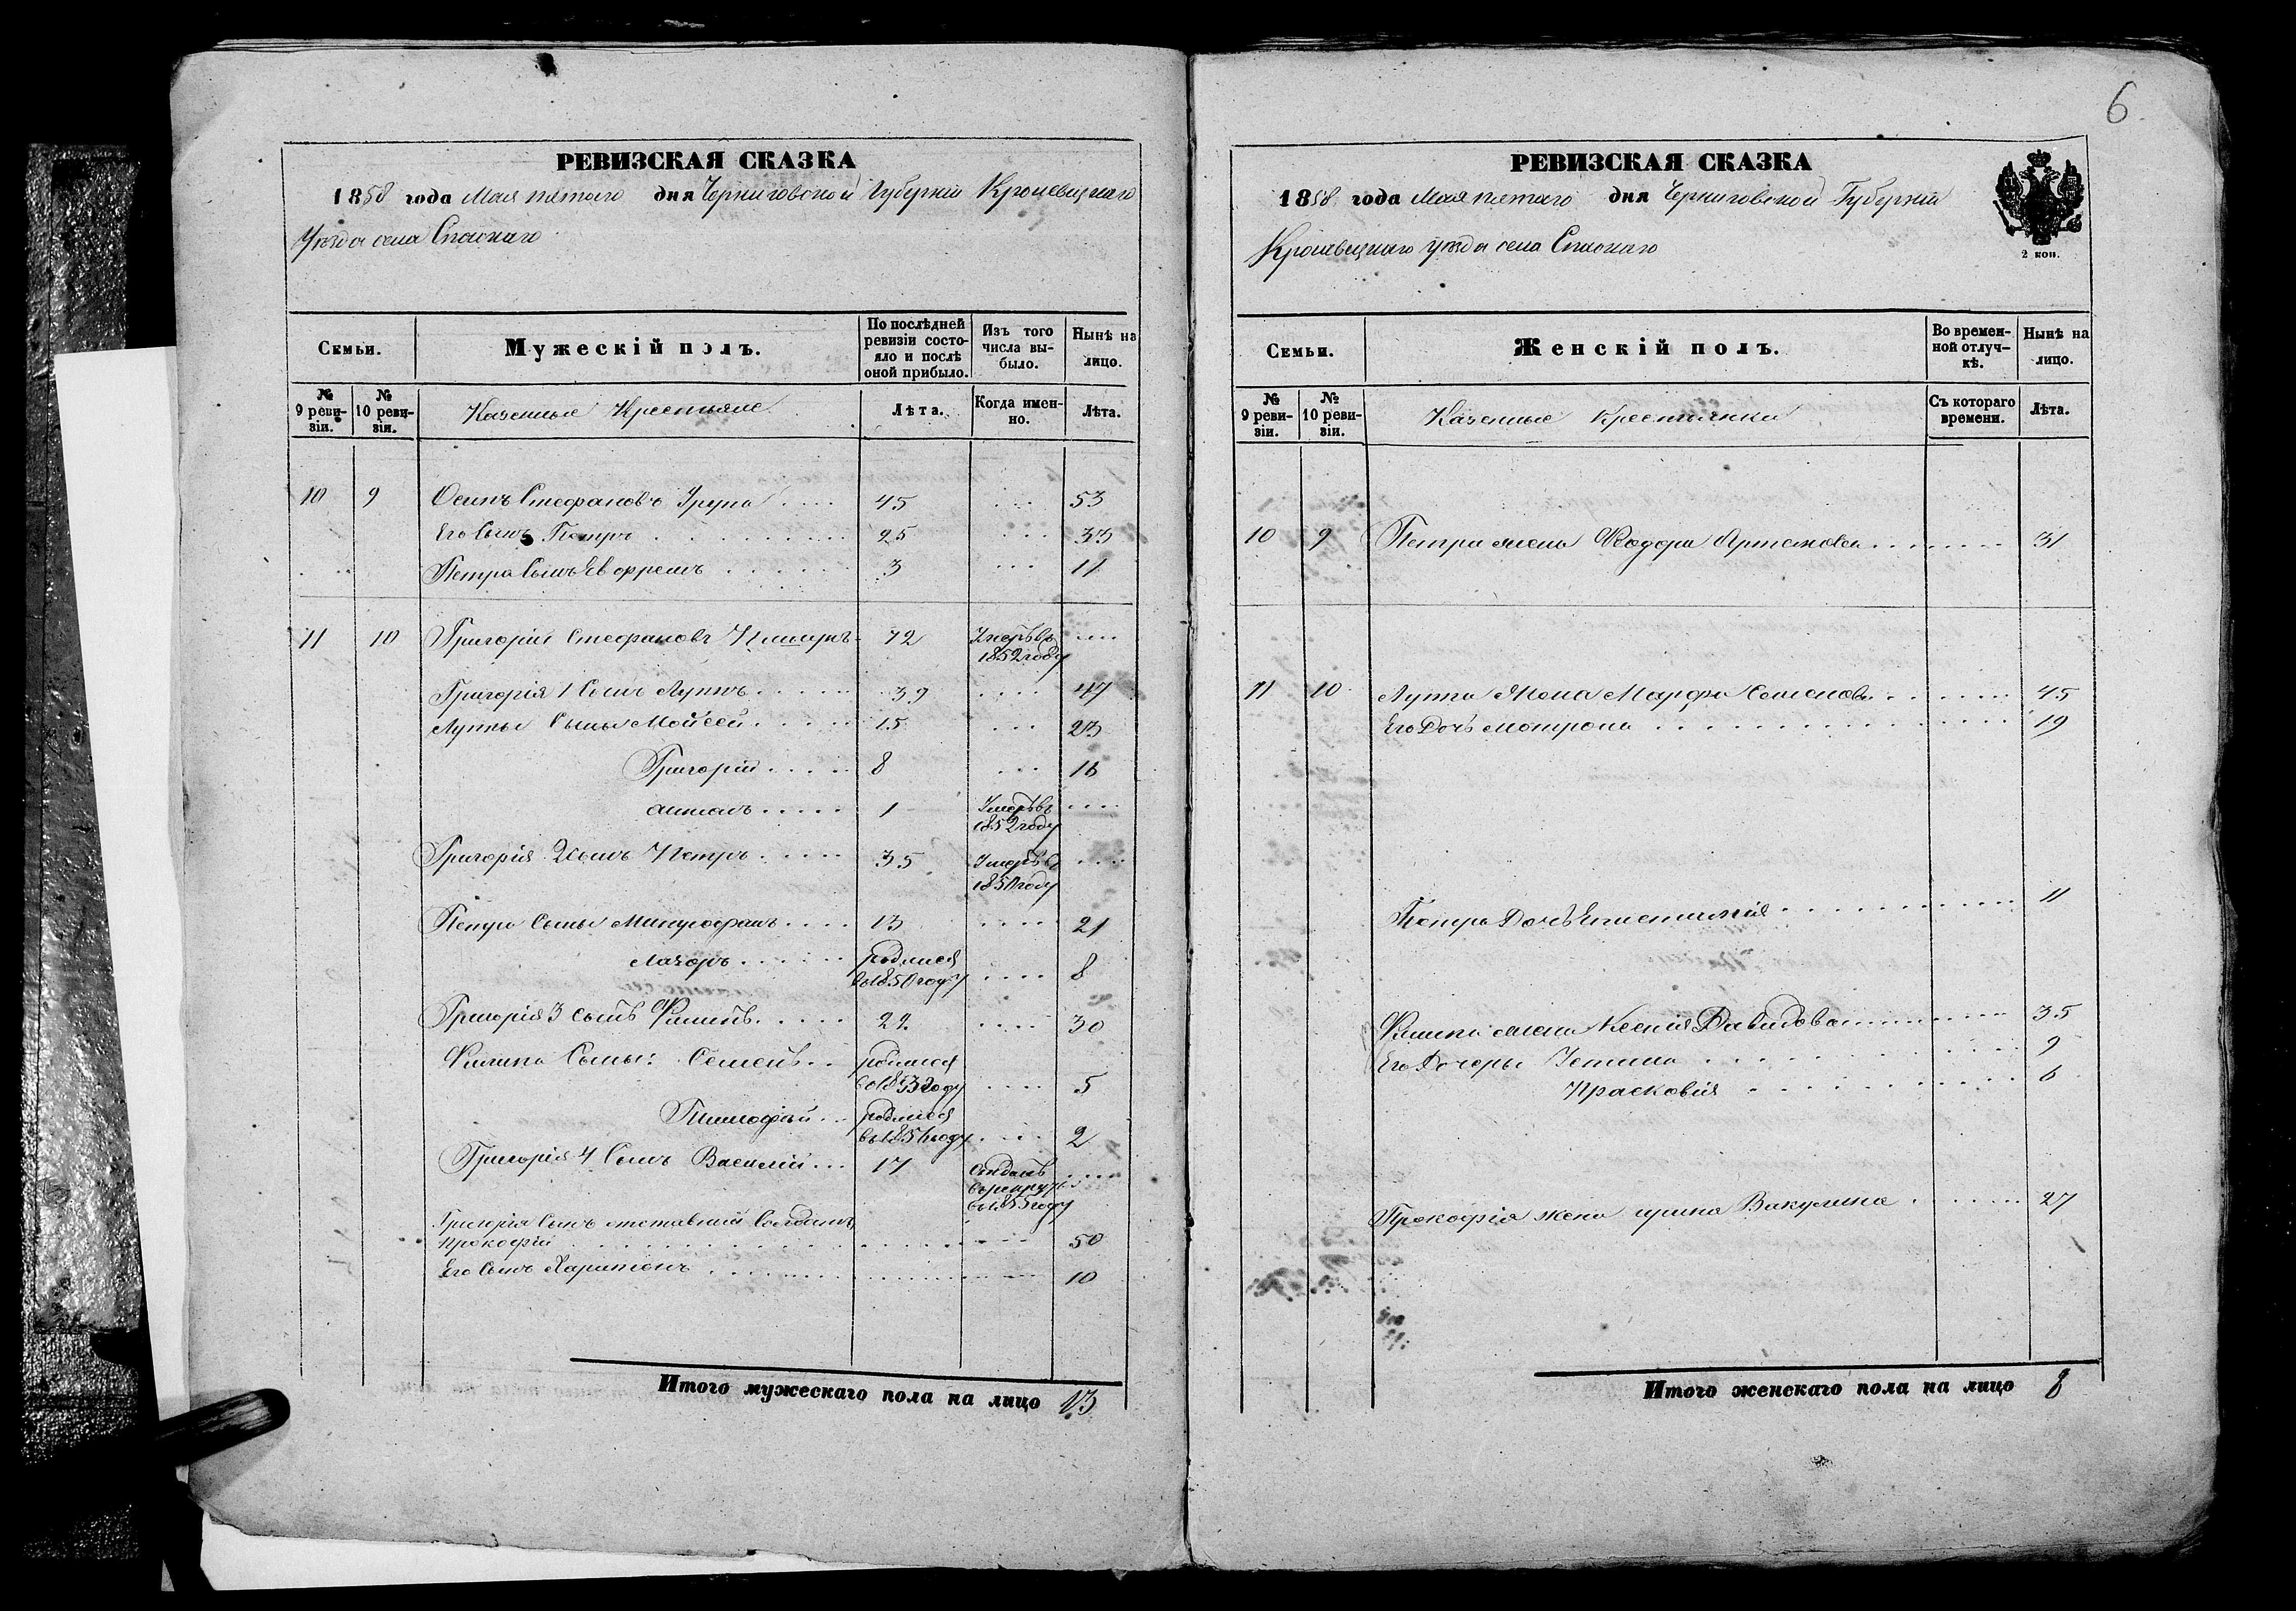 РЕВИЗСКАЯ СКАЗКА
1858 года Мая пятаго дня Черниговской Губерніи Кролевецкаго
Уѣзда села Спаскаго
Семьи.
Мужескій полъ.
По послѣдней ревизіи состояло и послѣ оной прибыло.
Изъ того числа выбыло.
Нынѣ на лицо.
№ 9 ревизіи.
№ 10 ревизіи.
Казенные Крестьяне
Лѣта.
Когда именно.
Лѣта.
10 9 Осипъ Стефановъ 45 53
Его Сынъ Петръ 25 33
Петра Сынъ Евфремъ 3 11
11 10 Григорій Стефановъ 72 Умеръ въ
1852 году
Григорія 1 Сынъ Луппъ 39 47
Луппы Сыны Мойсей 15 23
Григорій 8 16
1 Умеръ въ
1852 году
Григорія 2 Сынъ Петръ 35 Умеръ въ
1850 году
Петра Сыны Митрофанъ 13 21
Лазоръ родился
въ 1850 году 8
Григорія 3 сынъ Филипъ 22 30
Филипа Сыны: Семенъ родился
въ 1853 году 5
Тимофей родился
въ 1856 году 2
Григорія 4 Сынъ Василій 17 отданъ
въ рекруты
въ 1855 году
Григорія Сынъ отставный Солдатъ
Прокофій 50
Его Сынъ Харитонъ 10
Итого мужескаго пола на лицо 13
6
РЕВИЗСКАЯ СКАЗКА
1858 года Мая пятаго дня Черниговской Губерніи
Кролевецкаго уѣзда села Спаскаго
2 коп.
Семьи.
Женскій полъ.
Во временной отлучкѣ.
Нынѣ на лицо.
№ 9 ревизіи.
№ 10 ревизіи.
Казенные Крестьянки
Съ котораго времени.
Лѣта.
10 9 Петра жена Феодора Артемова 31
11 10 Луппа Жена Марфа Семенова 45
Его Дочь Мотрона 19
Петра Дочь 11
Филипа жена Ксенія Давидова 35
Его Дочеры 9
Прасковія 6
Прокофія жена ирина Вакулина 27
Итого женскаго пола на лицо 8